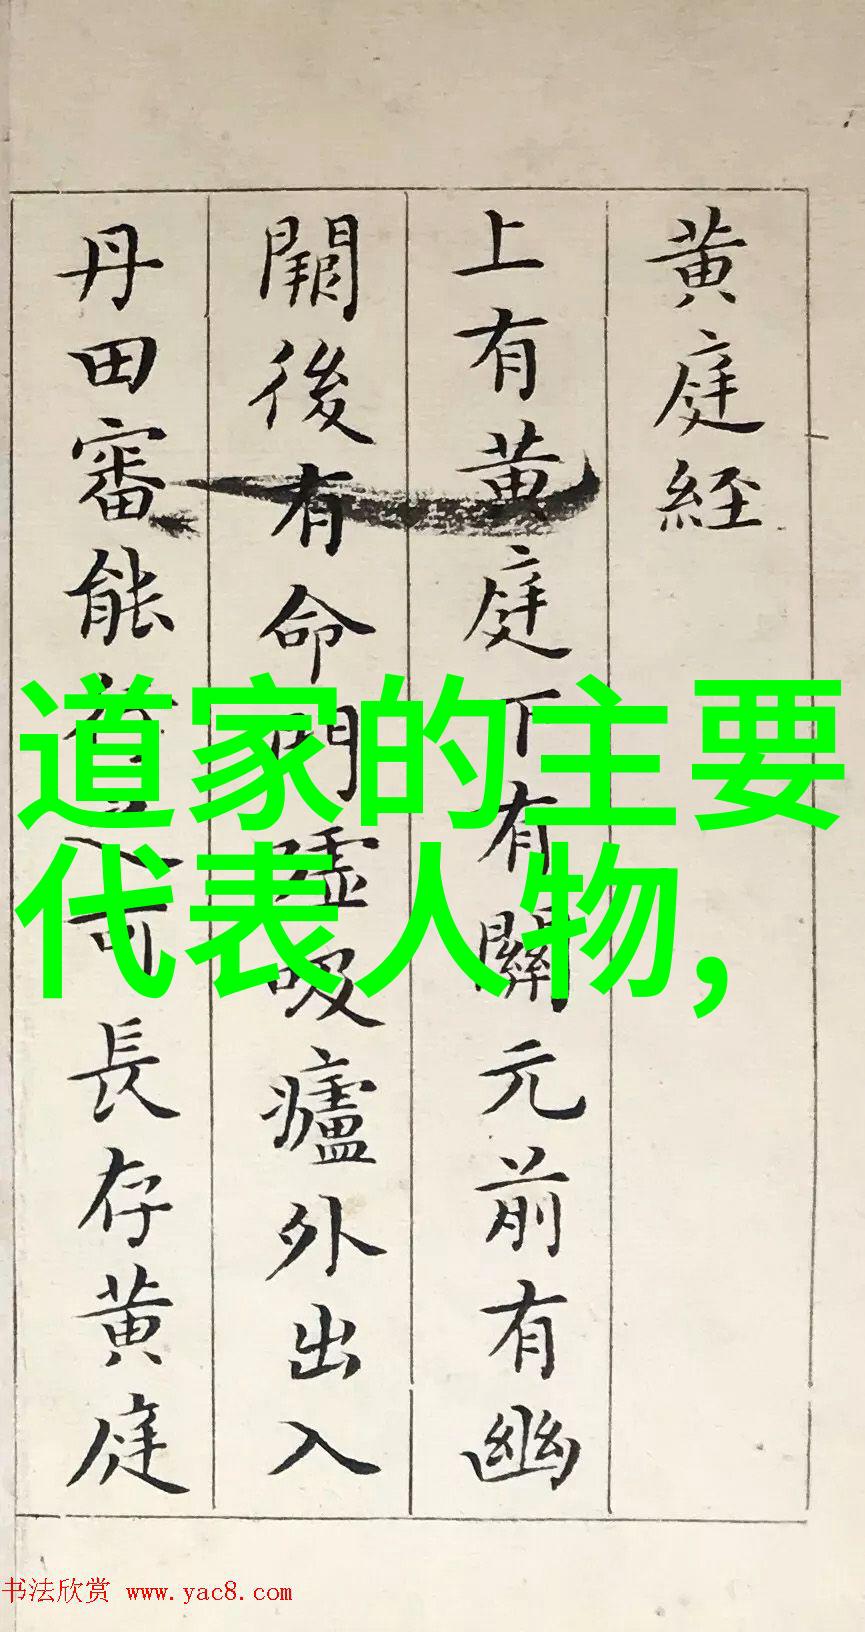 黄庭経
上有黄庭下有關元前有幽
闕後有命門嘘吸廬外出入
丹田審能行之可長存黄庭
道家的主要
代表人物,
书法欣赏 www.yac8.com